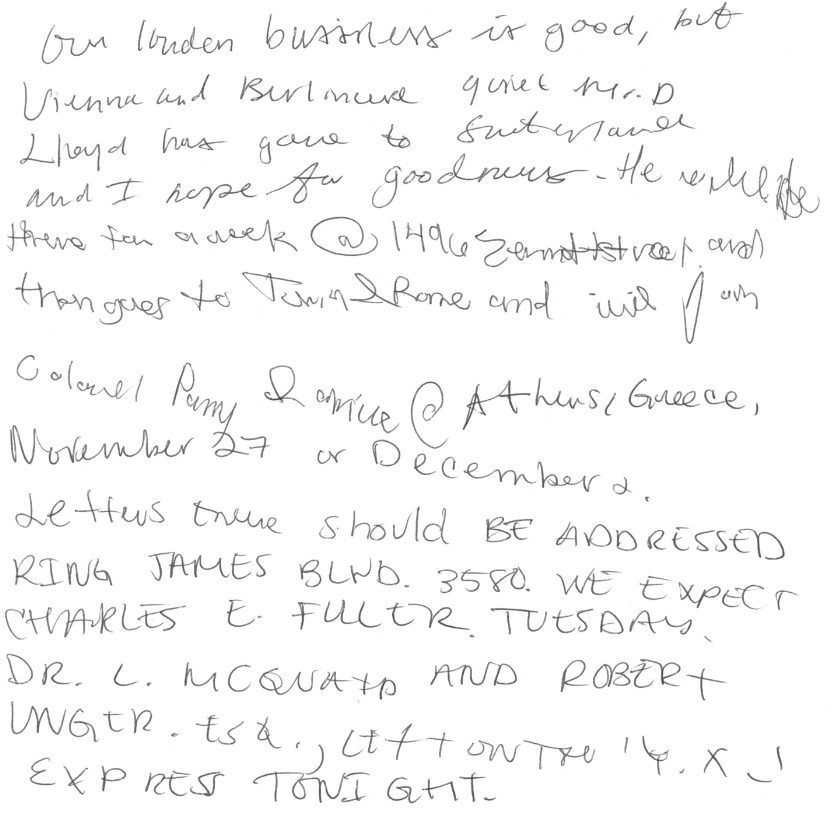 Our london business is good, but
Vienna and Berlin are quiet Mr. D
Lloyd has gone to Switerland
and I hope for good news. He will be
there for a week @ 1496 Zermott street and
then goes to Turin & Rome and will join
Colonel Parry & arrive @ Athens, Greece,
November 27 or December 2.
Letters there should BE ADDRESSED
RING JAMES BLVD. 3580. WE EXPECT
CHARLES E. FULER. TUESDAY.
DR. L. MCQUAID AND ROBERT
UNGER. ESQ., LEFT ON THE 'Y. X _'
EXPRESS TONIGHT.